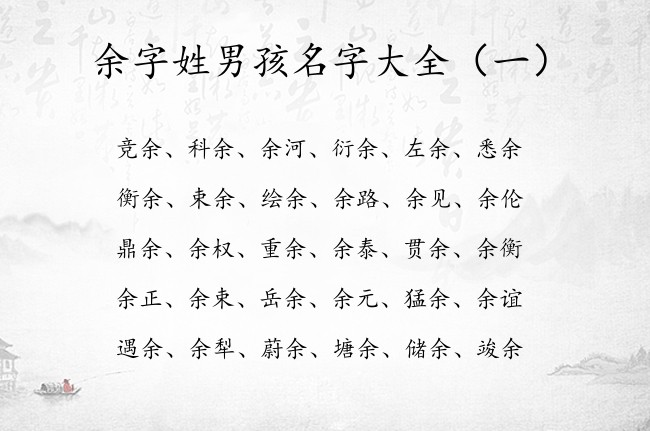 余字姓男孩名字大全（一）
竞余、科余、余河、衍余、左余、悉余
衡余、束余、绘余、余路、余见、余伦
鼎余、余权、重余、余泰、贯余、余衡
余正、余束、岳余、余元、猛余、余谊
遇余、余犁、蔚余、塘余、储余、竣余